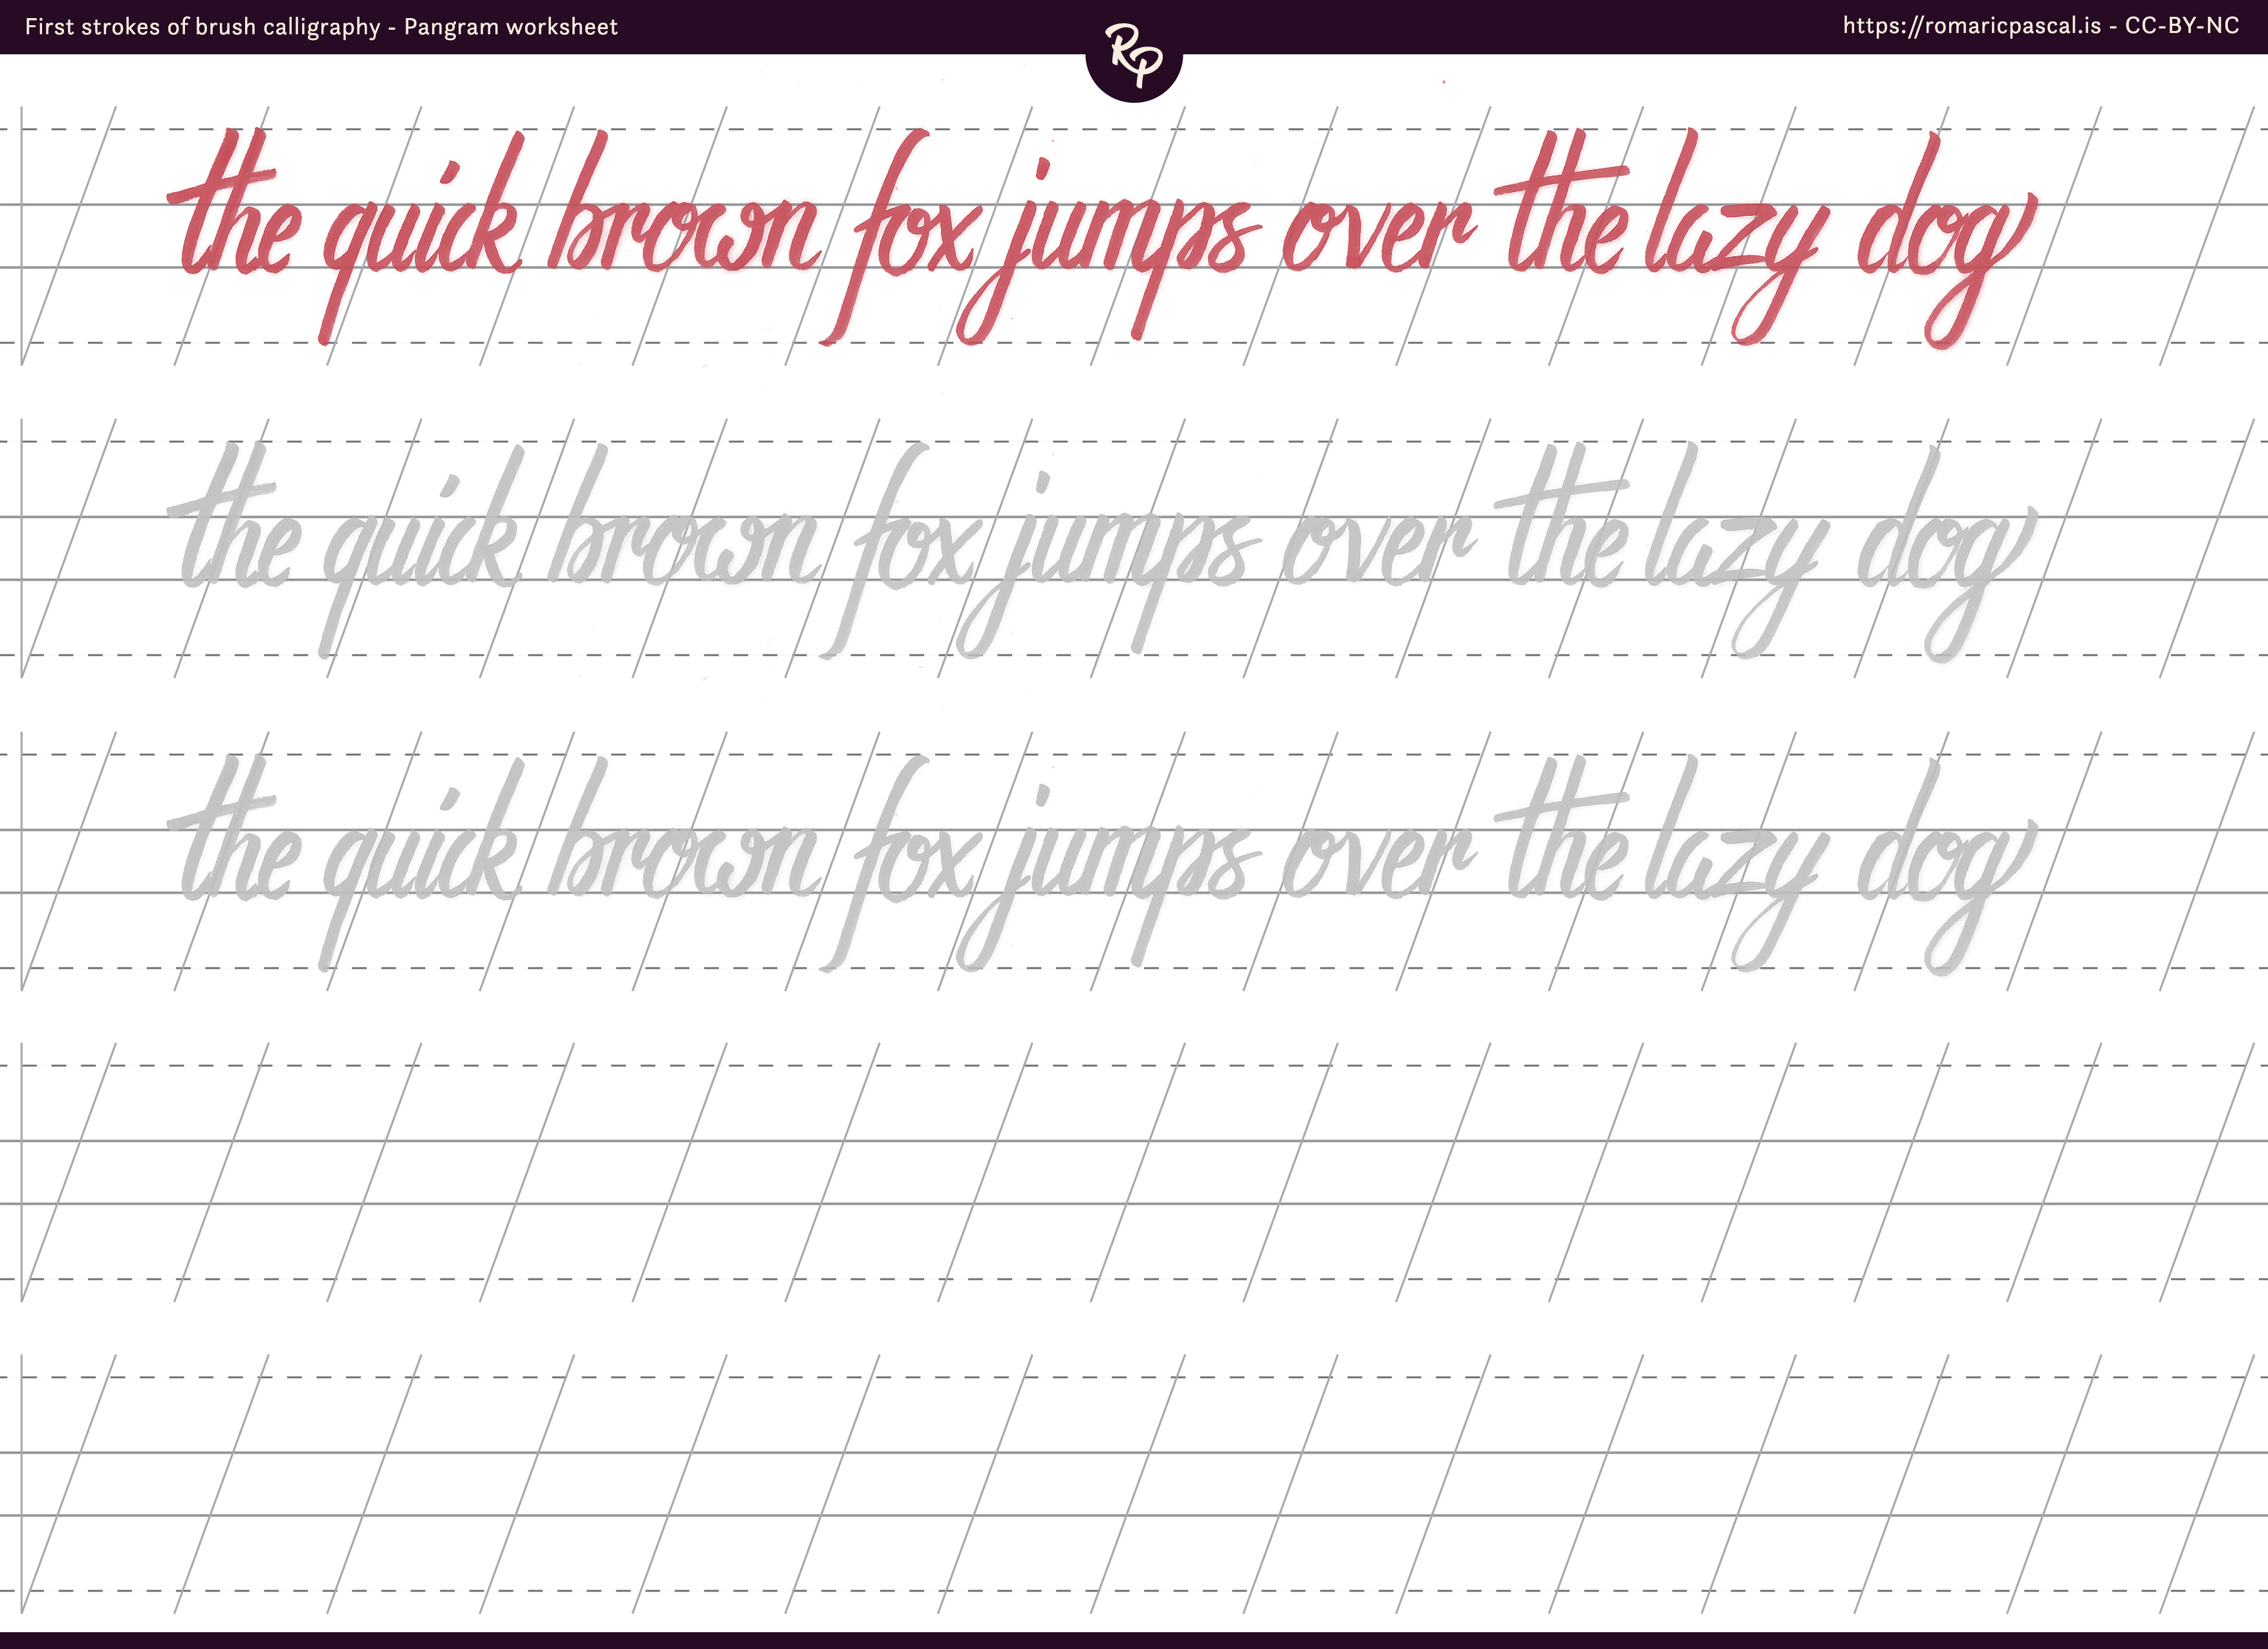 First strokes of brush calligraphy - Pangram worksheet
RP
https://romaricpascal.is - CC-BY-NC
the quick brown fox jumps over the lazy dog
the quick brown fox jumps over the lazy dog
the quick brown fox jumps over the lazy dog